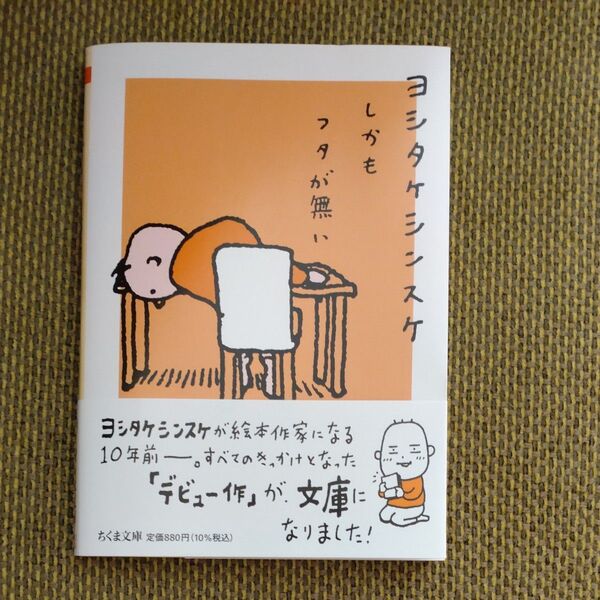 ヨシタケシンスケ
しかも
フタが無い
ヨシタケシンスケが絵本作家になる
10年前——。すべてのきっかけとなった
「デビュー作」が、文庫に
なりました!
ちくま文庫 定価880円(10%税込)